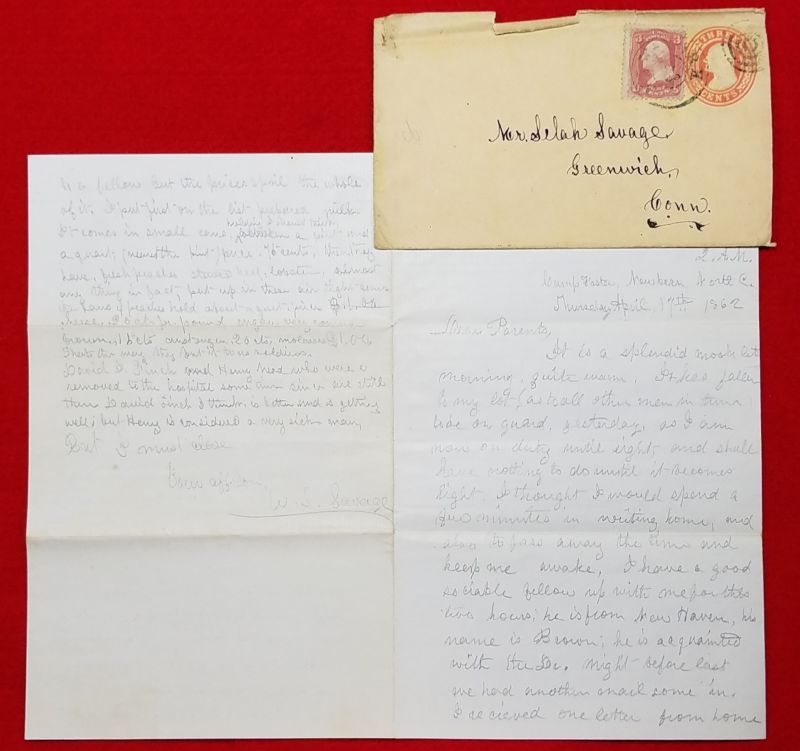 THREE
CENTS
Mr. Selah Savage,
Greenwich,
Conn.
2. A.M.
Camp Foster, Newbern, North C.
Thursday April 17th 1862
Dear Parents,
It is a splendid moon lit
morning, quite warm, It has falen
to my lot (as to all other men in turn)
to be on guard, yesterday, as I am
now on duty until eight and shall
have nothing to do until it becomes
light, I thought I would spend a
few minutes in writing home, and
also to pass away the time and
keep me awake, I have a good
sociable fellow up with me for this
two hours; he is from New Haven, his
name is Brown; he is acquainted
with the Dr. Night before last
we had another mail come in.
I recieved one letter from home
to a fellow but the prices spoil the whole
of it. I put first on the list prepared milk
It comes in small cans,
a quart, price, 75 cents, then they
have, fresh peaches stewed beef, lobster, almost
any thing in fact, put up in these air tight cans
the cans of peaches hold about a quart, price
cheese, pr. pound
brown, 15 cts
Thats the way they put it to us soldiers.
David D. Finch and Henry Mead who were
removed to the hospital some time since are still
there David Finch I think is better and is getting
well; but Henry is considered a very sick man,
But I must close
Your affson,
W. L. Savage